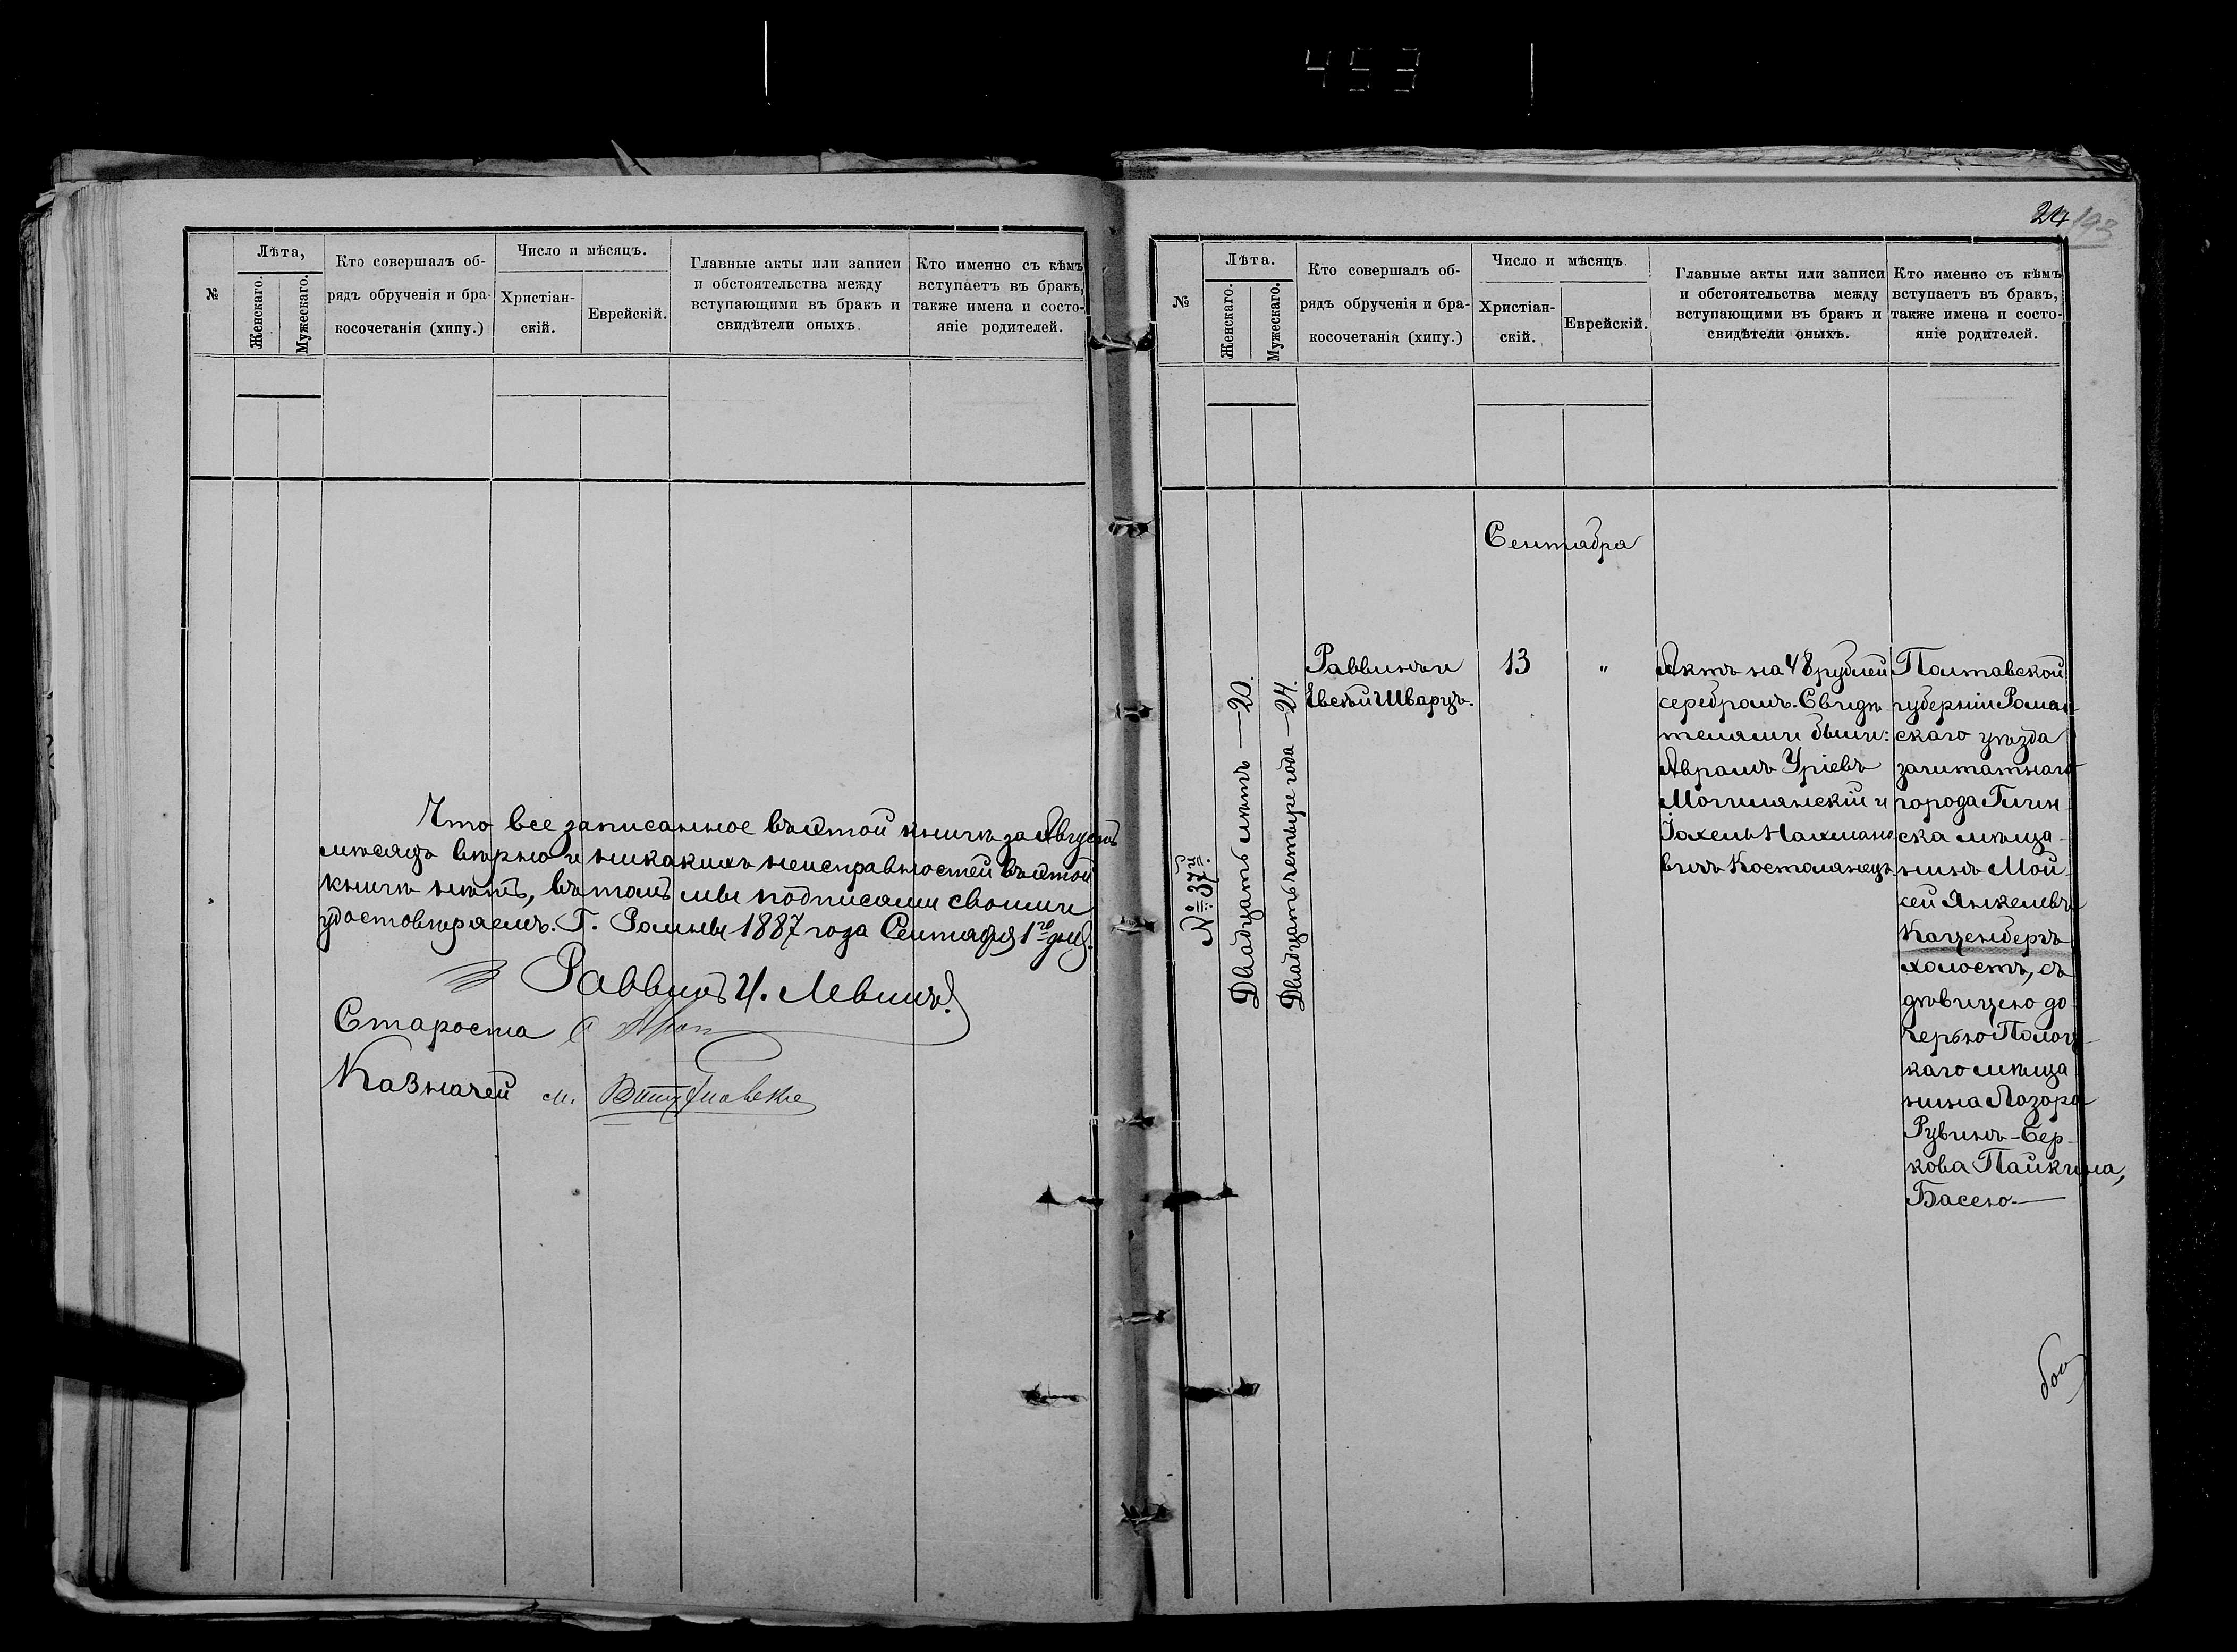 453
№
Лѣта,
Женскаго.
Мужескаго.
Кто совершалъ об-
рядъ обрученія и бра-
косочетанія (хипу.)
Число и мѣсяцъ.
Христіан-
скій.
Еврейскій.
Главные акты или записи
и обстоятельства между
вступающими въ бракъ и
свидѣтели оныхъ.
Кто именно съ кѣмъ
вступаетъ въ бракъ,
также имена и состо-
яніе родителей.
Что все записанное въ этой книгѣ за Августъ
мѣсяцъ вѣрно и никакихъ неисправностей въ этой
книгѣ нѣтъ, въ томъ мы подписами своими
удостовѣряемъ. Г. Ромны 1887 года Сентября 1го дня.
Раввинъ И. Левинъ
Староста
Казначей М.
24 193
№
Лѣта.
Женскаго.
Мужескаго.
Кто совершалъ об-
рядъ обрученія и бра-
косочетанія (хипу.)
Число и мѣсяцъ.
Христіан-
скій.
Еврейскій.
Главные акты или записи
и обстоятельства между
вступающими въ бракъ и
свидѣтели оныхъ.
Кто именно съ кѣмъ
вступаетъ въ бракъ,
также имена и состо-
яніе родителей.
Сентабра
№ 37й.
Двадцать лѣтъ — 20.
Двадцать четыре года — 24.
Раввинъ и
Евсѣй Шварцъ.
13
"
Актъ на 48 рублей
серебромъ. Свидѣ-
телями были:
Абрамъ Уріевъ
Могилянскій и
Іохель Нахмано
вичъ Костолянецъ
Полтавской
губерніи Ромен
скаго уѣзда
заштатнаго
города Глин
ска мѣща-
нинъ Мой
сей Янкелевъ
Каценбергъ
холостъ, съ
дѣвицею до
черью Полоц-
каго мѣща
нина Лозора
Рувинъ-Бер-
кова Пайкина,
Басею. —